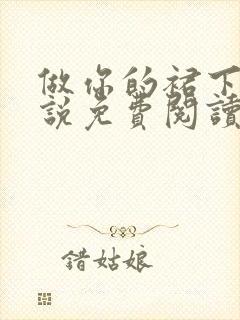 做你的裙下
說免費閱讀
錯姑娘